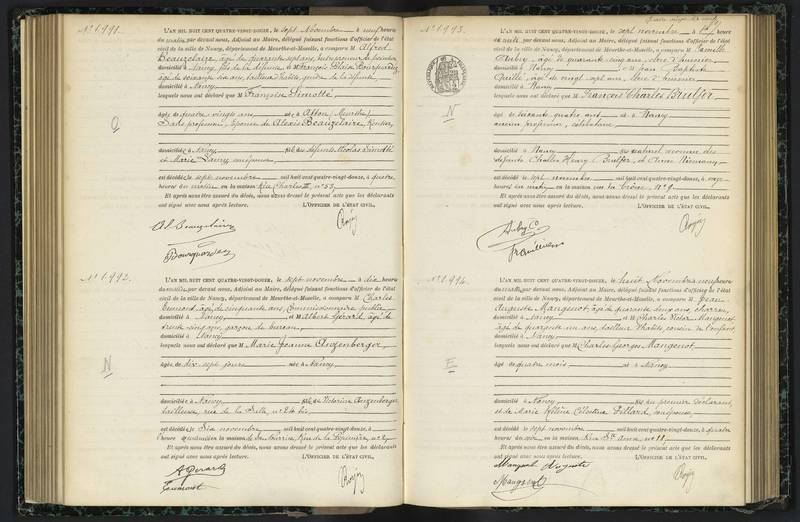 N° 1.991.
L'AN MIL HUIT CENT QUATRE-VINGT-DOUZE, le sept Novembre à neuf heures
du matin par devant nous, Adjoint au Maire, délégué faisant fonctions d'officier de l'état
civil de la ville de Nancy, département de Meurthe-et-Moselle, a comparu M Alfred
Beauzelaire, âgé de quarante sept ans, entrepreneur de
domicilié à Nancy, fils de la défunte, et M François Bourguardez
âgé de soixante six ans, tailleur d'habits, gendre de la défunte,
domicilié à Nancy
lesquels nous ont déclaré que M Françoise Simotté
âgée de quatre vingts ans née à Atton (Meurthe)
Sans profession, épouse de Alexis Beauzelaire, Rentier,
domiciliée à Nancy fille des défunts Nicolas Simotté
et Marie
est décédée le sept novembre mil huit cent quatre-vingt-douze, à quatre
heures du matin en la maison Rue Charles III, n° 53.
Et après nous être assuré du décès, nous avons dressé le présent acte que les déclarants
ont signé avec nous après lecture. L'OFFICIER DE L'ÉTAT CIVIL,
Al Beauzelaire
Bourguardez
N° 1.992.
N
L'AN MIL HUIT CENT QUATRE-VINGT-DOUZE, le sept novembre à dix heures
du matin par devant nous, Adjoint au Maire, délégué faisant fonctions d'officier de l'état
civil de la ville de Nancy, département de Meurthe-et-Moselle, a comparu M Charles
âgé de cinquante ans, Commissionnaire public
domicilié à Nancy et M Albert Gérard, âgé de
trente cinq ans, garçon de bureau
domicilié à Nancy
lesquels nous ont déclaré que M Marie Jeanne Anzenberger
âgée de dix sept jours née à Nancy
domiciliée à Nancy fille de Victorine Anzenberger
tailleuse, rue de la n° 24 bis,
est décédée le Six novembre mil huit cent quatre-vingt-douze, à
heure en la maison Rue de la Pépinière, n°
Et après nous être assuré du décès, nous avons dressé le présent acte que les déclarants
ont signé avec nous après lecture. L'OFFICIER DE L'ÉTAT CIVIL,
A Gérard
N° 1.993.
N
L'AN MIL HUIT CENT QUATRE-VINGT-DOUZE, le sept novembre à heure
par devant nous, Adjoint au Maire, délégué faisant fonctions d'officier de l'état
civil de la ville de Nancy, département de Meurthe-et-Moselle, a comparu M Camille
Aubry, âgé de quarante cinq ans, clerc d'huissier
domicilié à Nancy et M Jean Baptiste
âgé de vingt sept ans, clerc d'huissier
domicilié à Nancy
lesquels nous ont déclaré que M François Charles Brulfer
âgé de soixante quatre ans né à Nancy
ancien professeur, célibataire
domicilié à Nancy fils naturel reconnu des
défunts Charles Henry Brulfer, et Anne
est décédé le sept novembre mil huit cent quatre-vingt-douze, à onze
heures du matin en la maison n° 9
Et après nous être assuré du décès, nous avons dressé le présent acte que les déclarants
ont signé avec nous après lecture. L'OFFICIER DE L'ÉTAT CIVIL,
Aubry C
N° 1.994.
E
L'AN MIL HUIT CENT QUATRE-VINGT-DOUZE, le huit Novembre à neuf heures
du matin par devant nous, Adjoint au Maire, délégué faisant fonctions d'officier de l'état
civil de la ville de Nancy, département de Meurthe-et-Moselle, a comparu M Jean
Auguste Mangenot, âgé de quarante cinq ans, charron,
domicilié à Nancy et M Charles Victor Mangenot
âgé de quarante un ans, tailleur d'habits, cousin de l'enfant,
domicilié à Nancy
lesquels nous ont déclaré que M Charles Georges Mangenot
âgé de quatre mois né à Nancy
domicilié à Nancy fils du premier déclarant,
et de Marie Hélène Célestine Pillard, son épouse
est décédé le sept novembre mil huit cent quatre-vingt-douze, à quatre
heures du soir en la maison Rue Ste Anne n° 11,
Et après nous être assuré du décès, nous avons dressé le présent acte que les déclarants
ont signé avec nous après lecture. L'OFFICIER DE L'ÉTAT CIVIL,
Mangenot Auguste
Mangenot